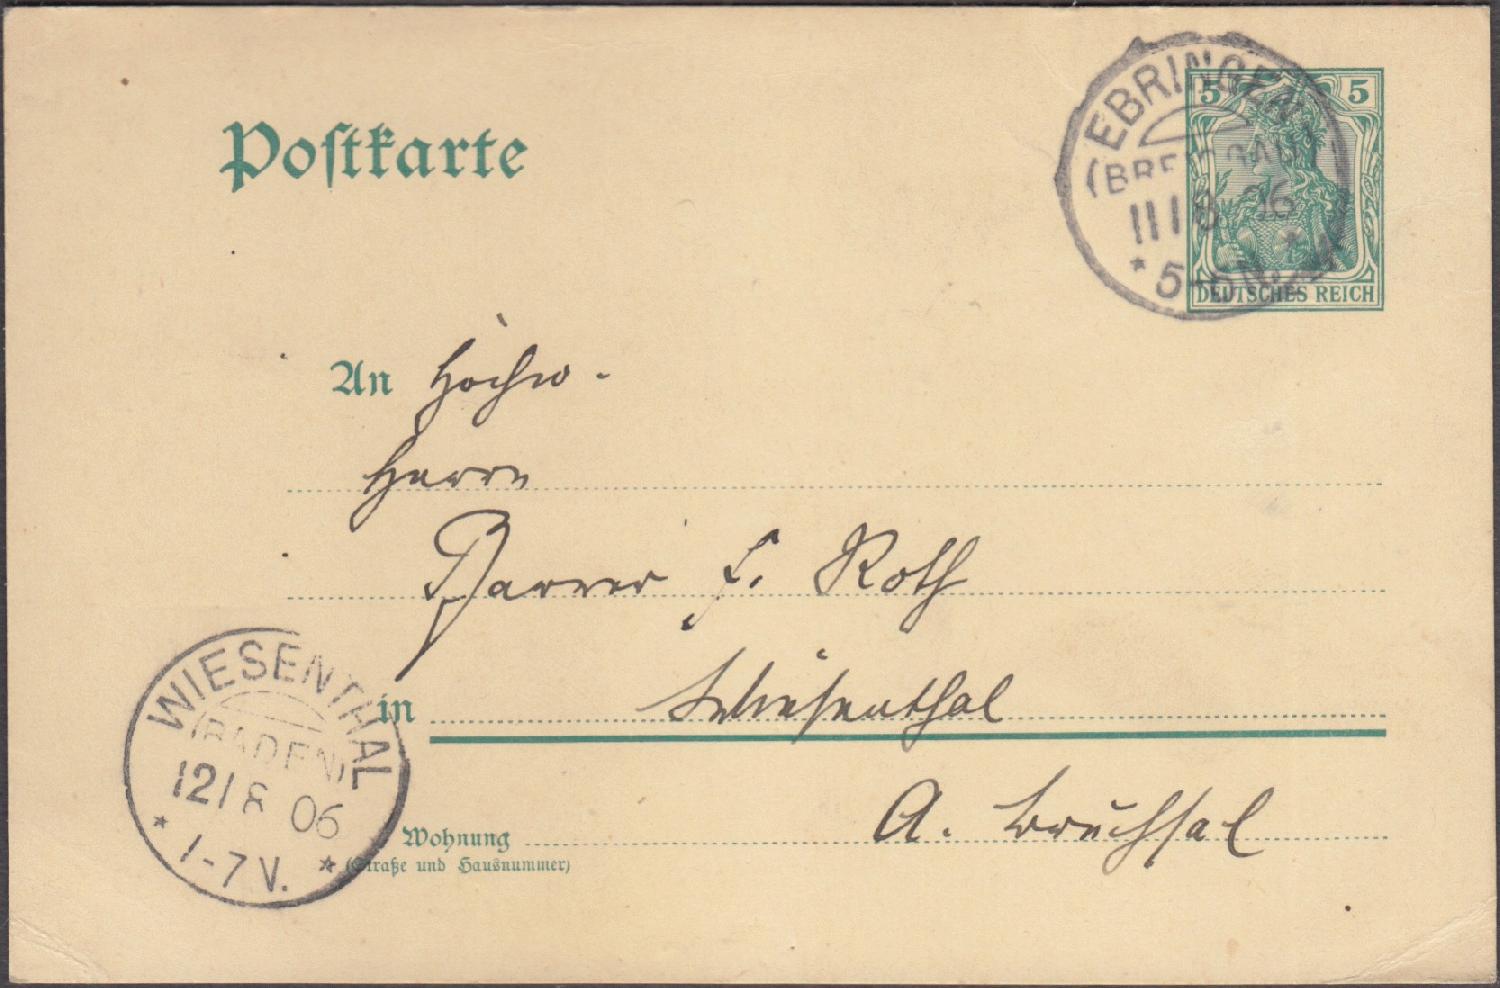 Postkarte
5 5
DEUTSCHES REICH
EBRINGEN
(BREISGAU)
11 8 06
* 5-6N. *
An Hochw.
Herrn
Pfarrer F. Roth
in Wiesenthal
A. Bruchsal
Wohnung
(Straße und Hausnummer)
WIESENTHAL
(BADEN)
12 8 06
* 1-7 V. *